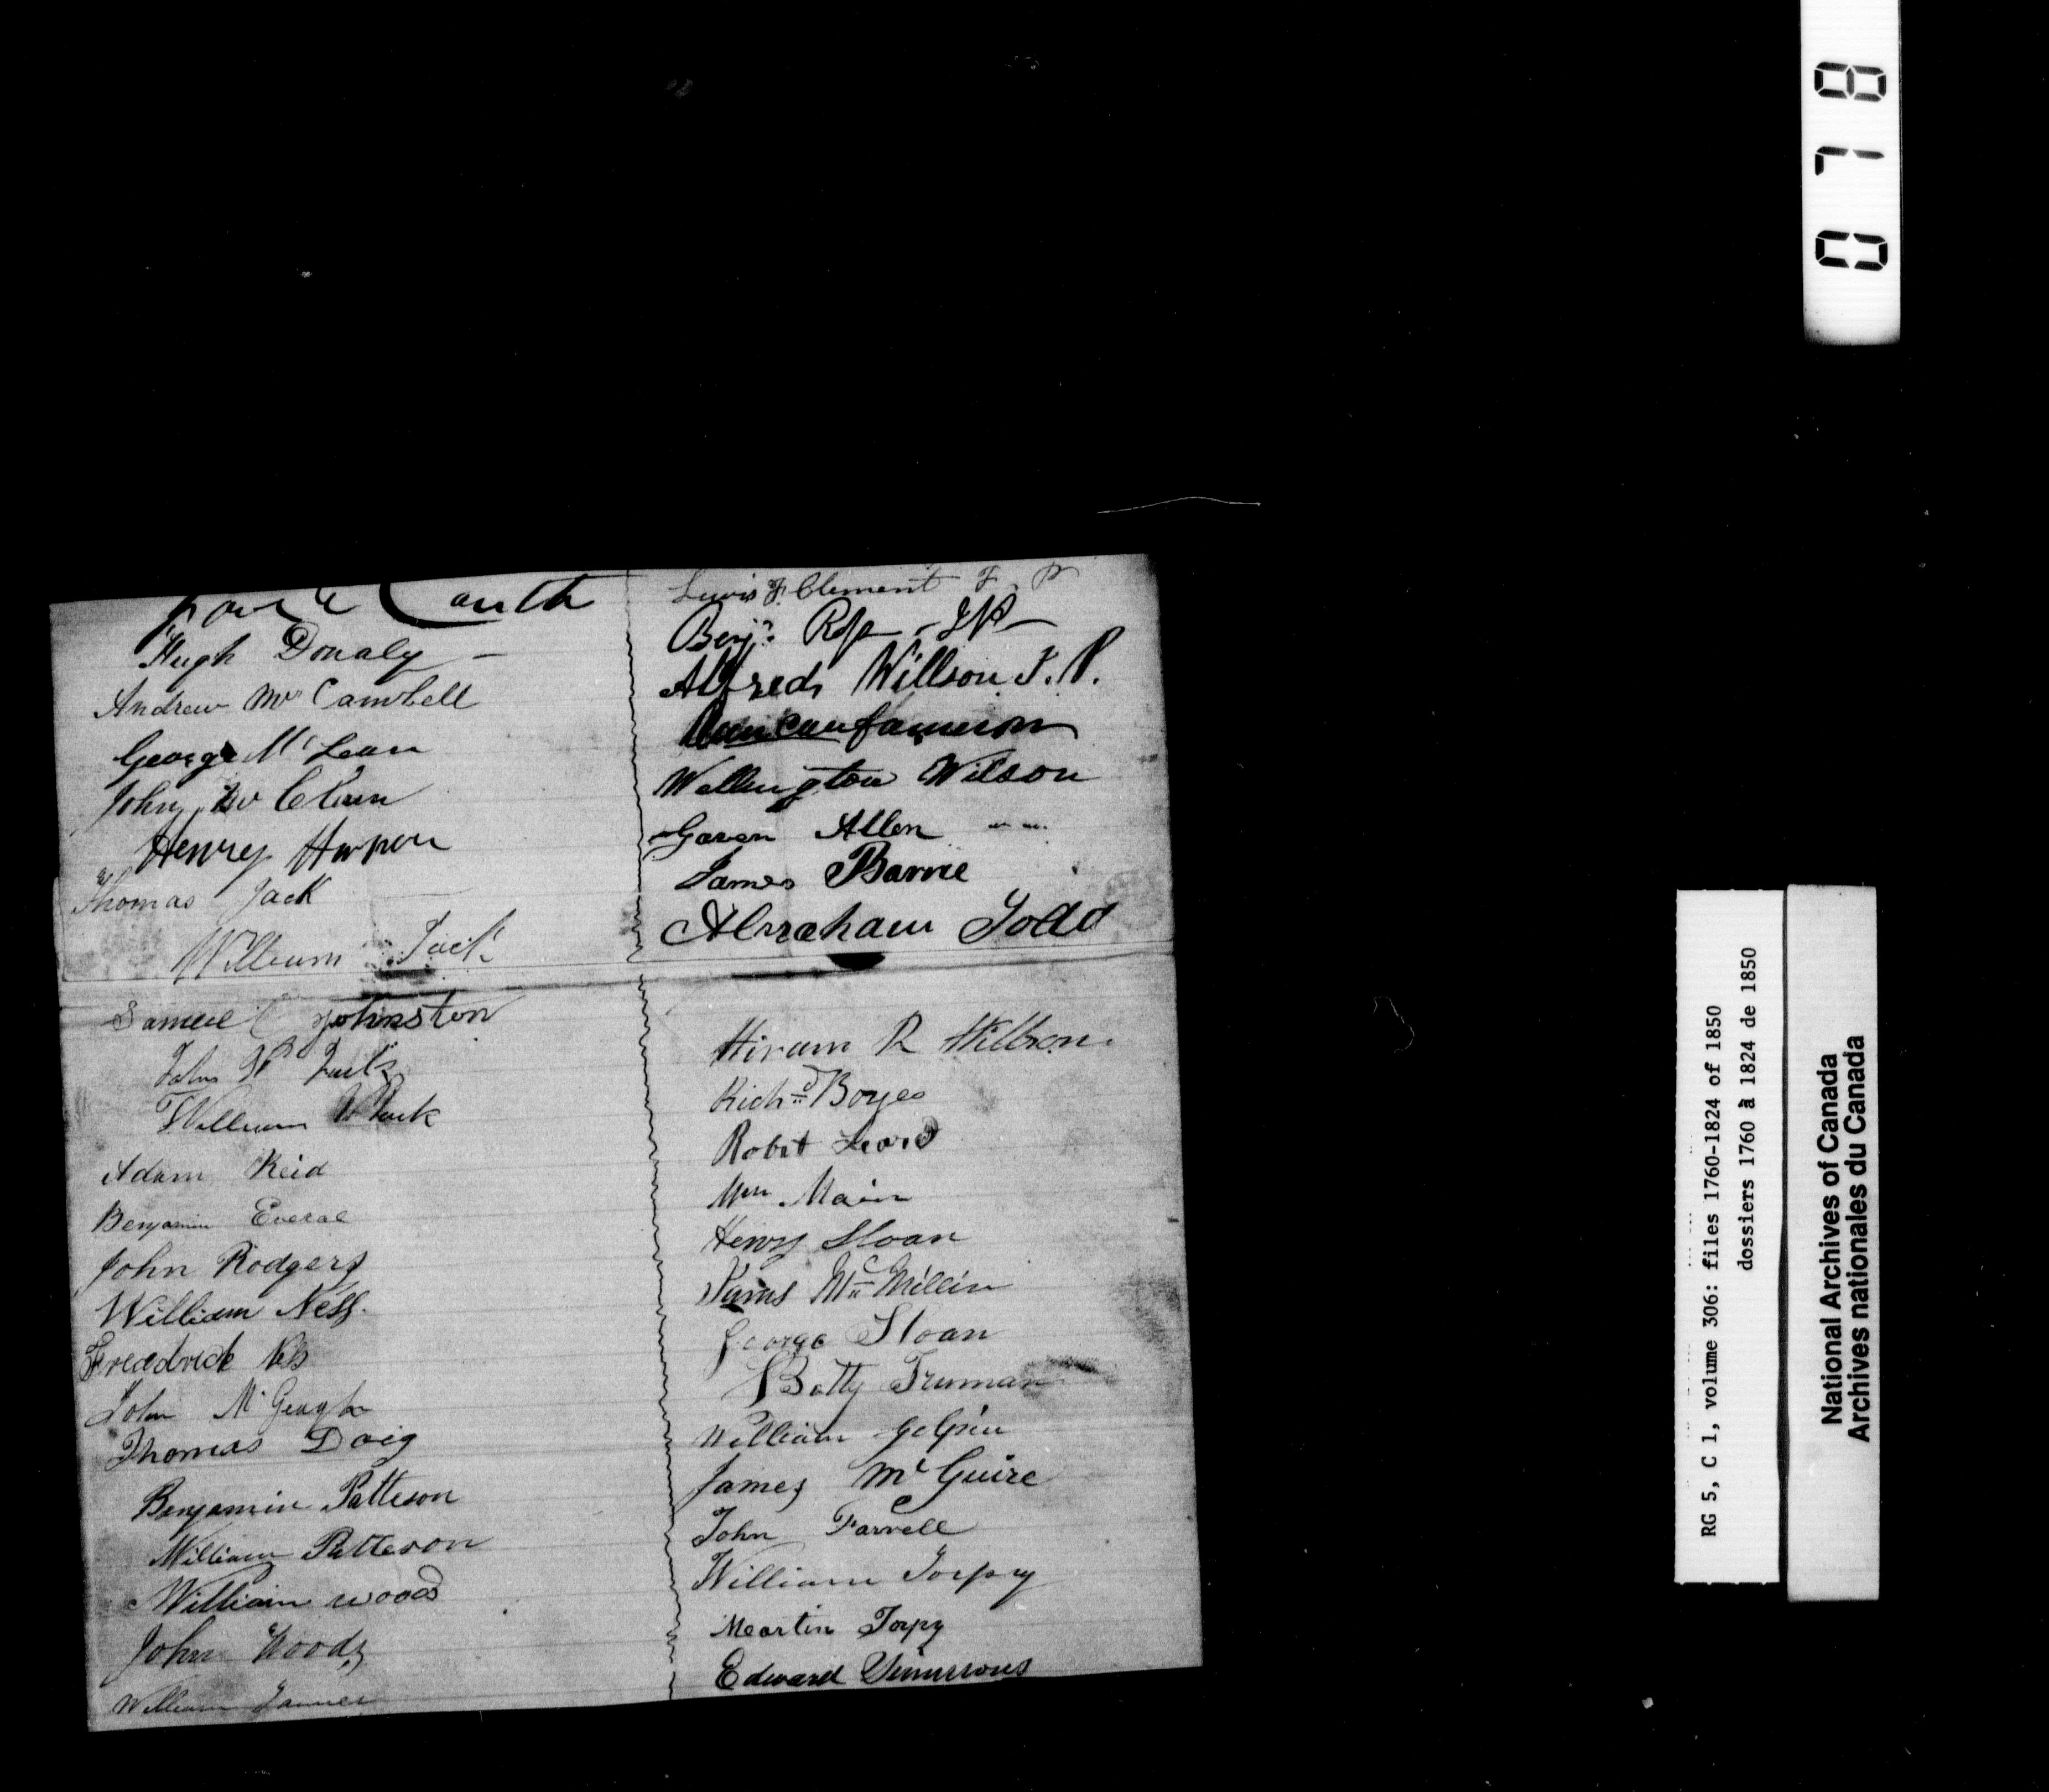 Hugh Donaly
Andrew Mc Cambell
George Mc Lean
John Mc Clean
Henry Harper
Thomas Jack
William Jack
Samuel C Johnston
John
William
Adam Reid
Benjamin Everal
John Rodgers
William Ness
Freadrick Ness
John Mc Geugh
Thomas Doig
Benjamin Patteson
William Patteson
William woods
John Woods
William
Lewis F. Clement J. P
Benjn Ross - JP -
Alfred Willson J. P.
Duncan Cameron
Wellington Wilson
Gaven Allen
James Barrie
Abraham Todd
Hiram R Willson
Richd Boyes
Robt
Wm Main
Henry Sloan
James Mc Millin
George Sloan
Batty Truman
William
James Mc Guire
John Farrell
William Torpy
Meartin Torpy
Edward Simmons
0718
RG 5, C 1, volume 306: files 1760-1824 of 1850
dossiers 1760 à 1824 de 1850
National Archives of Canada
Archives nationales du Canada